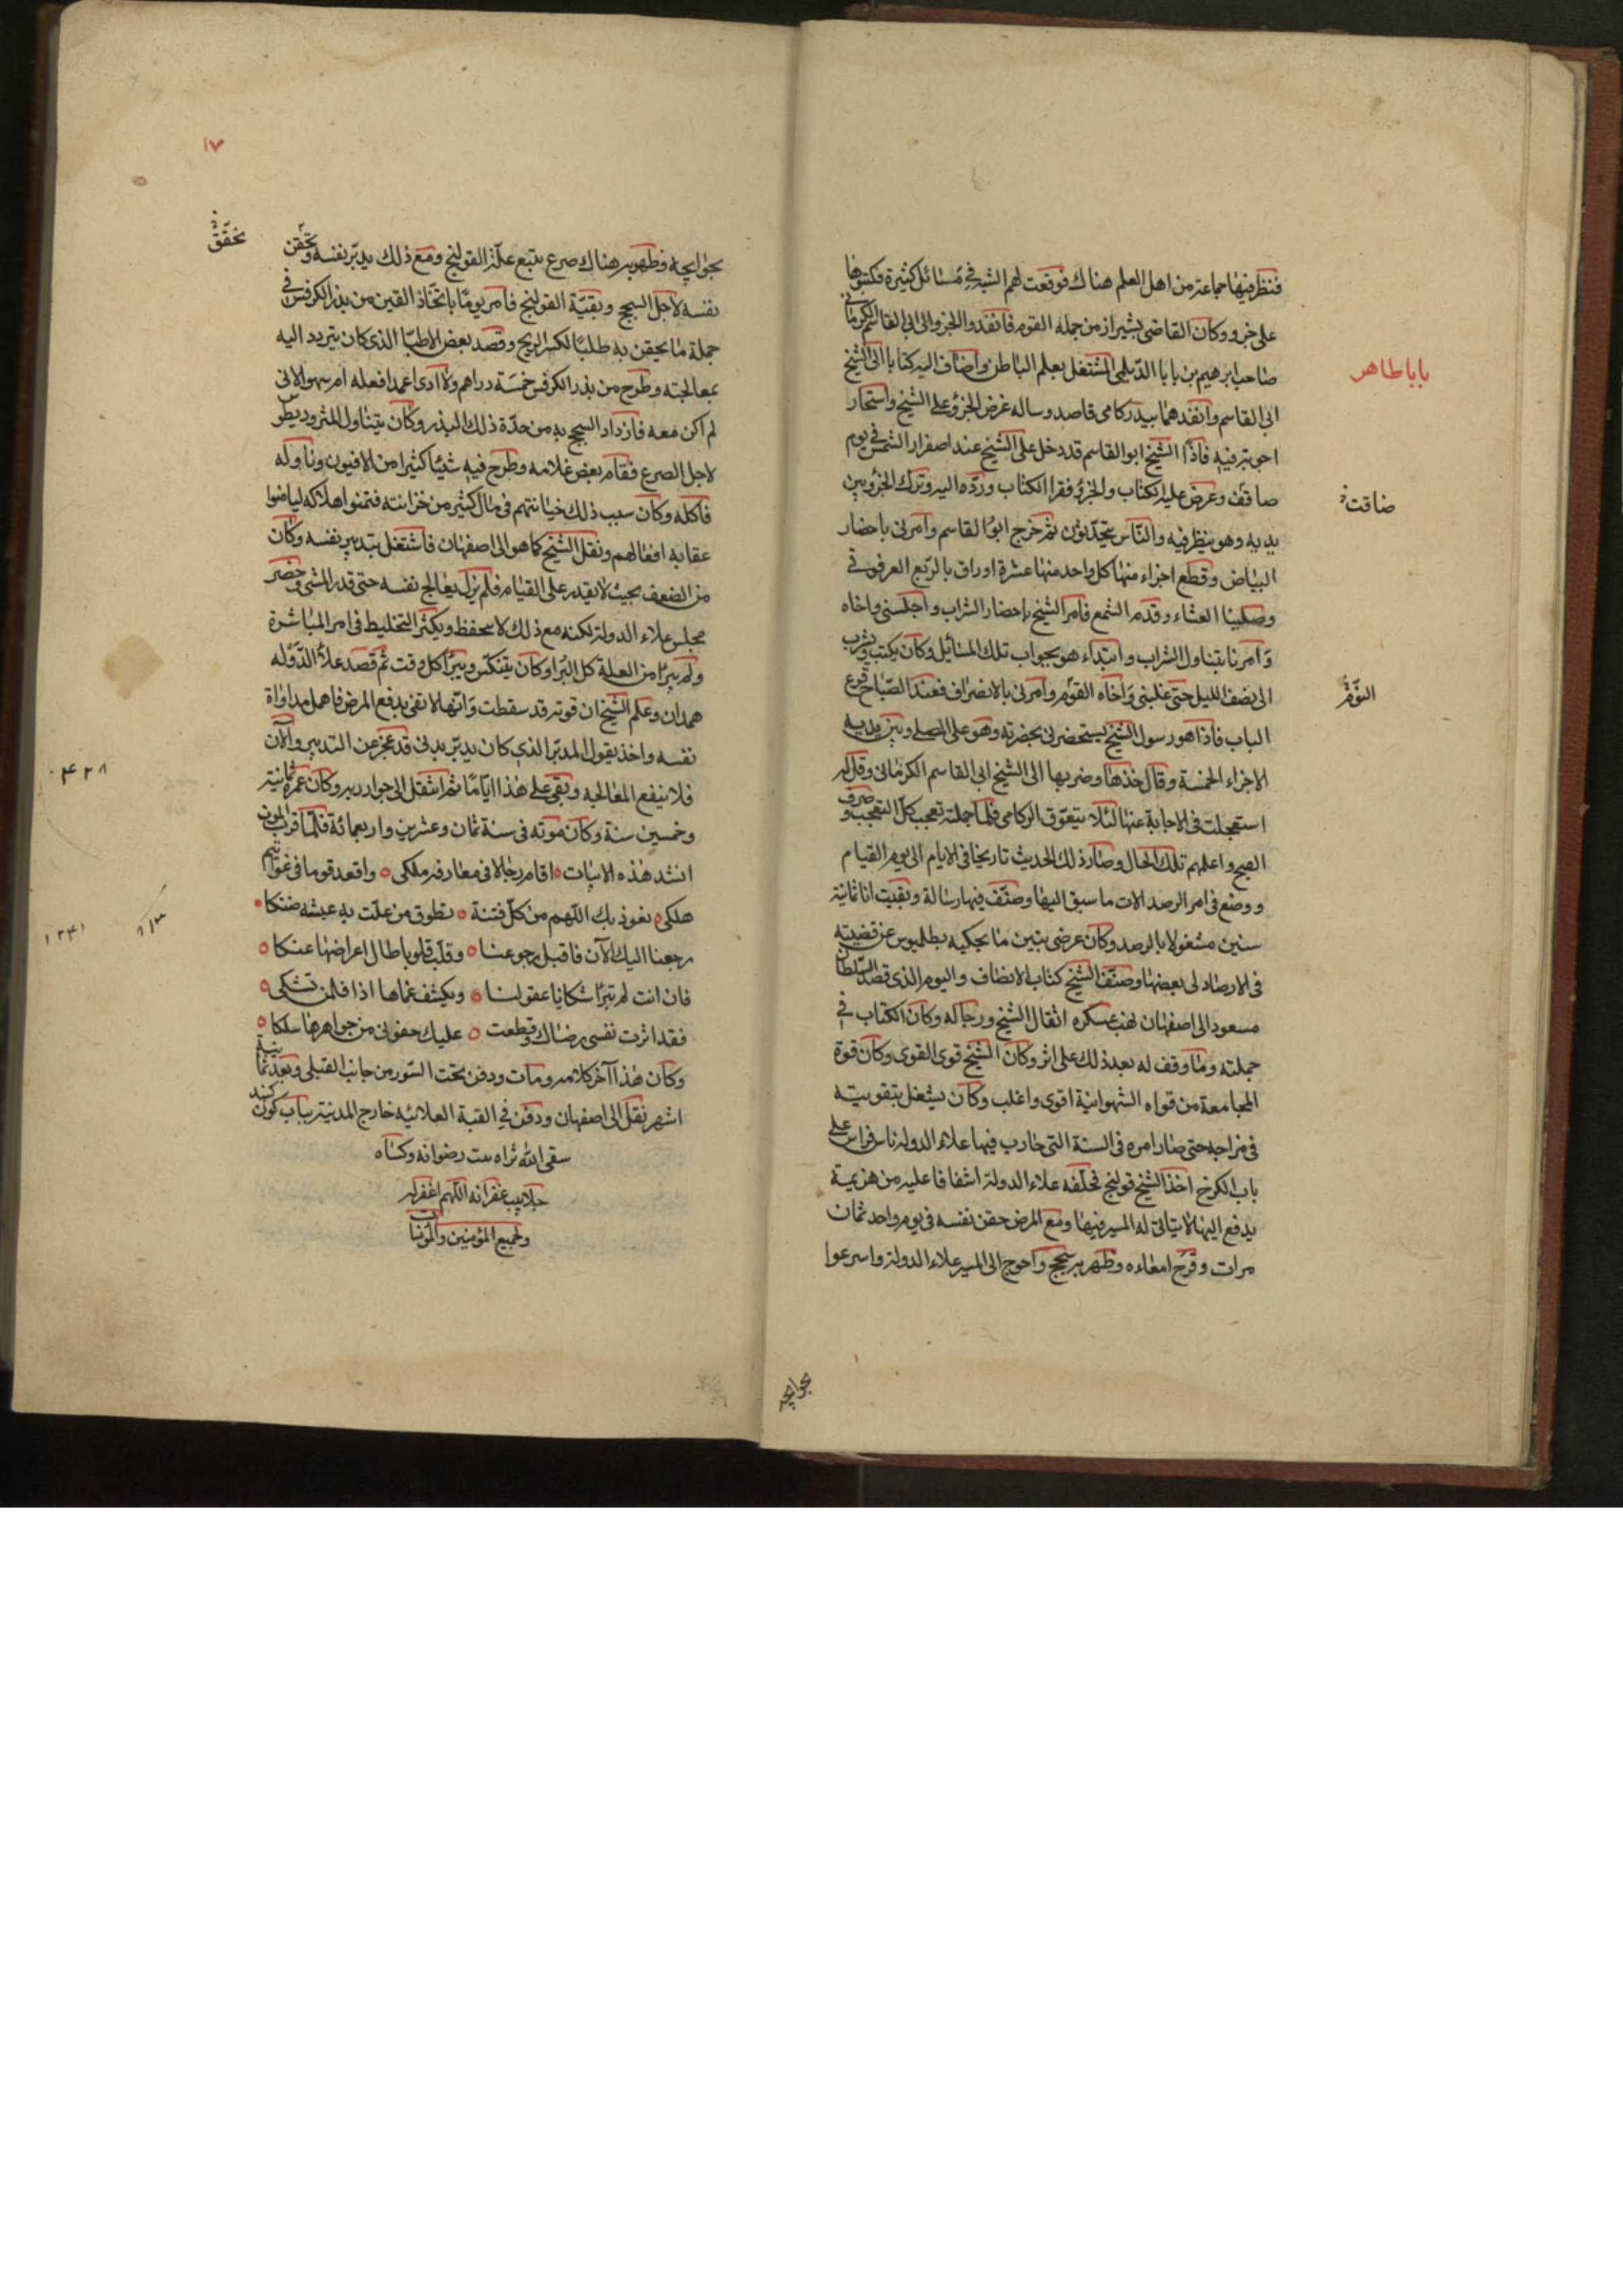 فنظر فيها جماعة من اهل العلم هناك فوقعت لهم الشبه فى مسائل كثيرة فكتبوها
على جزو وكان القاضى بشيراز من جمله القوم فانفذ والجزو الى ابى القاسم الكرمانى
صاحب ابرهيم بن بابا الديلمى المشتغل بعلم الباطن واضاف اليه كتابا الى الشيخ
بابا طاهر
ابى القاسم وانفذهما بيد ركامى قاصد وساله عرض الجزؤ على الشيخ واستحار
اجوبته فيه فاذا الشيخ ابو القاسم قد دخل على الشيخ عند اصفرار الشمس فى يوم
صائف وعرض عليه الكتاب والجزؤ فقرا الكتاب ورده اليه وترك الجزؤ بين
ضاقت
يديه وهو ينظر فيه والناس يتحدثون ثم خرج ابو القاسم وامرنى باحضار
البياض وقطع اجزاء منها كل واحد منها عشرة اوراق بالربع الفرعونى
وصلينا العشاء وقدم الشمع فامر الشيخ باحضار الشراب واجلسنى واخاه
وامرنا بتناول الشراب وابتداء هو بجواب تلك المسائل وكان يكتب ويشرب
الى نصف الليل حتى غلبنى واخاه القوم وامرنى بالانصراف فعند الصباح قرع
النوم
الباب فاذا هو رسول الشيخ يستحضرنى بحضرته وهو على المصلى وبين يديه
الاجزاء الخمسة وقال خذها وصر بها الى الشيخ ابى القاسم الكرمانى وقل له
استعجلت فى الاجابة عنها لئلا يتعوق الركامى فلما حملته تعجب كل التعجب وصرف
الفيج واعلمهم تلك الحال وصار ذلك الحديث تاريخا فى الايام الى يوم القيام
ووضع فى امر الرصد الات ما سبق اليها وصنف فيها رسالة وبقيت انا ثمانية
سنين مشغولا بالرصد وكان عرضى تبين ما يحكيه بطلميوس عن قضيته
فى الارصاد لى بعضها وصنف الشيخ كتاب الانصاف واليوم الذى قصد السلطان
مسعود الى اصفهان نهب عسكره اثقال الشيخ ورجاله وكان الكتاب فى
جملته وما وقف له بعد ذلك على اثر وكان الشيخ قوى القوى وكان قوة
المجامعة من قواه الشهوانية اقوى واغلب وكان يشغل بتقويته
فى مزاجه حتى صار امره فى السنة التى حارب فيها علاء الدوله تاش فراس على
باب الكرخ اخذ الشيخ قولنج فخلفه علاء الدولة اشفاقا عليه من هزيمة
يدفع اليها لا يتاتى له المسير فيها ومع المرض حقن نفسه فى يوم واحد ثمان
مرات وقرح امعاءه وظهر به سحج واحوج الى المسير علاء الدولة واسرعوا
١٧
بجوانجه فظهر به هناك صرع يتبع علة القولنج ومع ذلك يدبر نفسه ويحقن
نفسه لاجل السحج وبقية القولنج فامر يوما باتخاذ القين من بذر الكرفس فى
جملة ما يحقن به طلبا لكسر الريح وقصد بعض الاطبا الذى كان يتردد اليه
بمعالجته وطرح من بذر الكرفس خمسة دراهم ولا ادرى اعمدا فعله ام سهوا لانى
لم اكن معه فازداد السحج به من حدة ذلك البذر وكان يتناول المثروديطوس
لاجل الصرع فقام بعض غلامه وطرح فيه شيئا كثيرا من الافيون وناوله
فاكله وكان سبب ذلك خيانتهم فى مال كثير من خزانته فتمنوا هلاكه ليامنوا
عقابه افعالهم ونقل الشيخ كما هو الى اصفهان فاشتغل بتدبير نفسه وكان
من الضعف بحيث لا يقدر على القيام فلم يزل يعالج نفسه حتى قدر المشى وحضر
مجلس علاء الدولة لكنه مع ذلك لا يتحفظ ويكثر التخليط فى امر المباشرة
ولم يبرأ من العلة كل البرا وكان ينتكس ويبرأ كل وقت ثم قصد علاء الدوله
همدان وعلم الشيخ ان قوته قد سقطت وانها لا تفى بدفع المرض فاهمل مداواة
نفسه واخذ يقول المدبر الذى كان يدبر بدنى قد عجز عن التدبير والآن
٤٢٨
فلا ينفع المعالجه وبقى على هذا اياما ثم انتقل الى جوار ربه وكان عمره ثمانية
وخمسين سنة وكان موته فى سنة ثمان وعشرين واربعمائة فلما قرب الموت
انشد هذه الابيات اقام رجالا فى معارفه ملكى واقعد قوما فى غوايتهم
هلكى نعوذ بك اللهم من كل فتنة تطوق من علت به عيشه ضنكا
١٢٤١
رجعنا اليك الآن فاقبل رجوعنا وقلب قلوبا طال اعراضها عنكا
فان انت لم تبرأ شكايا عقولنا ويكشف عماها اذا فلمن تشكى
فقد اثرت نفسى رضاك وقطعت عليك جفونى من جواهرها سلكا
وكان هذا آخر كلامه ومات ودفن تحت السور من جانب القبلى وبعد ثمانية
اشهر نقل الى اصفهان ودفن فى القبة العلائيه خارج المدينة بباب كون كنبد
سقى الله ثراه رضوانه وكساه
جلابيب غفرانه اللهم اغفر له
ولجميع المؤمنين والمؤمنات
بجوانجه